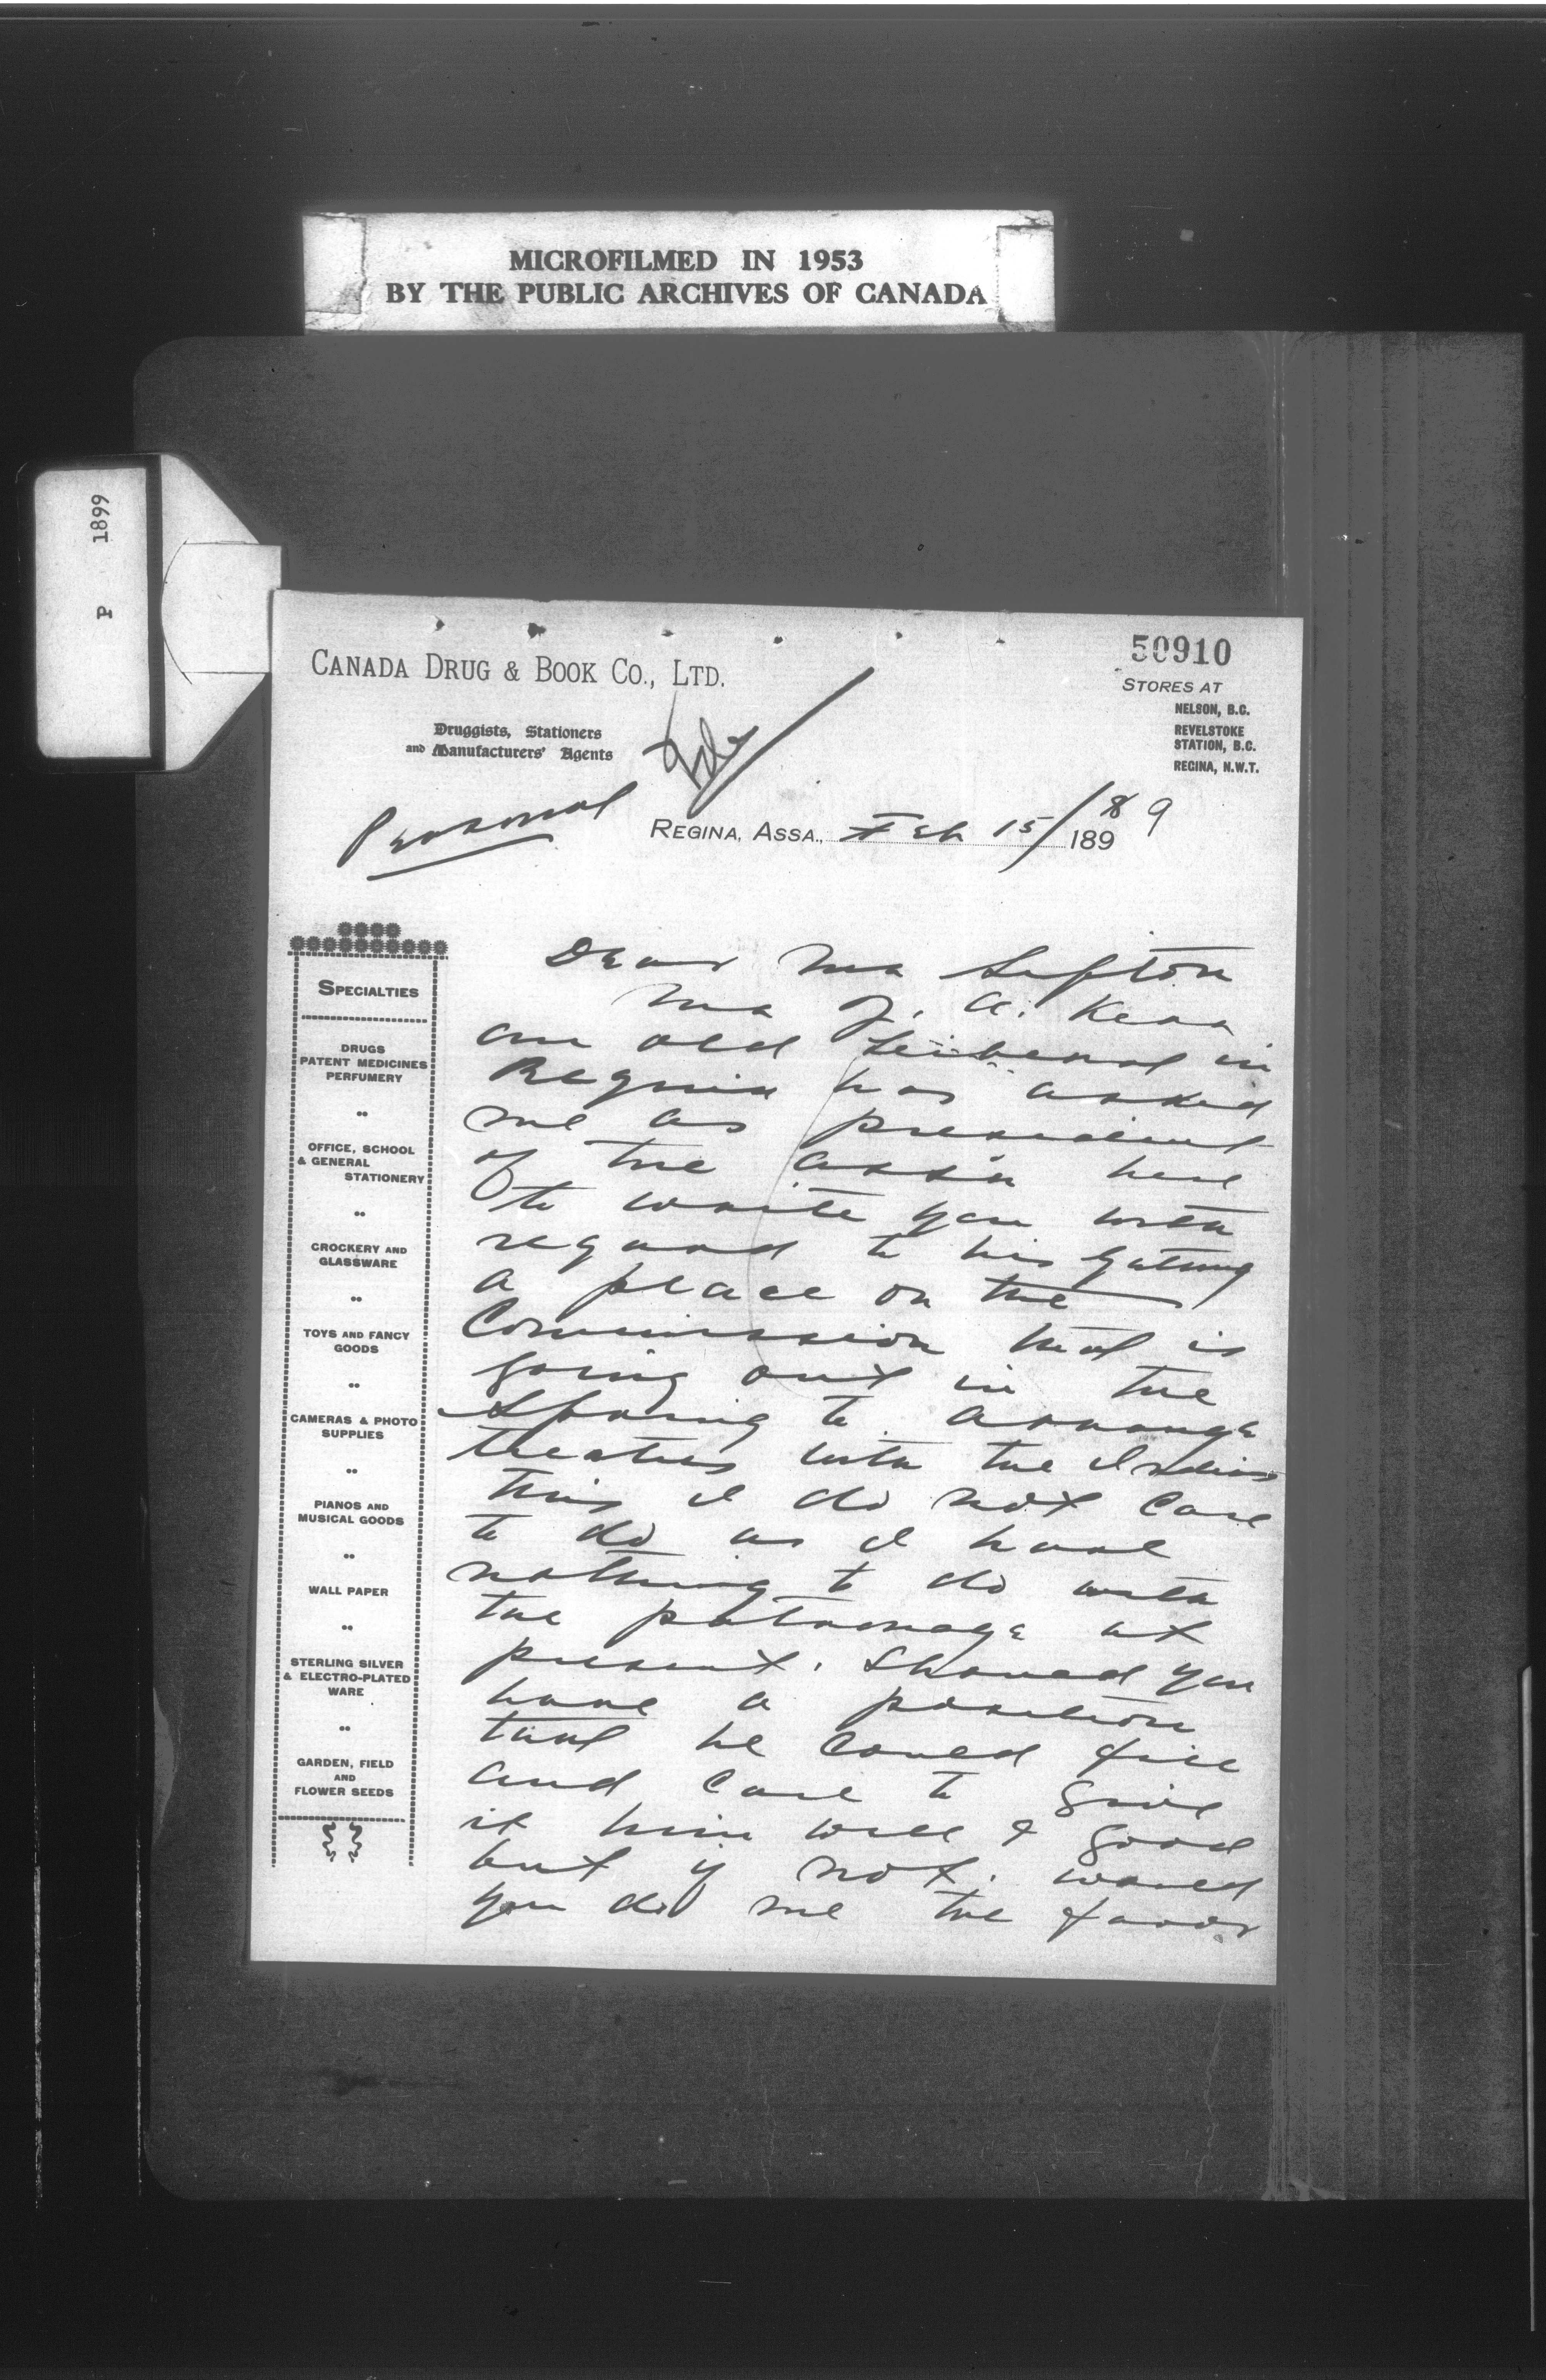 MICROFILMED IN 1953
BY THE PUBLIC ARCHIVES OF CANADA
P 1899
50910
CANADA DRUG & BOOK CO., LTD.
Druggists, Stationers
and Manufacturers' Agents
STORES AT
NELSON, B.C.
REVELSTOKE
STATION, B.C.
REGINA, N.W.T.
Personal
REGINA, ASSA., Feb 15/ 189 9
SPECIALTIES
DRUGS
PATENT MEDICINES
PERFUMERY
OFFICE, SCHOOL
& GENERAL
STATIONERY
CROCKERY AND
GLASSWARE
TOYS AND FANCY
GOODS
CAMERAS & PHOTO
SUPPLIES
PIANOS AND
MUSICAL GOODS
WALL PAPER
STERLING SILVER
& ELECTRO-PLATED
WARE
GARDEN, FIELD
AND
FLOWER SEEDS
Dear Mr Sifton
Mr J. A. Kerr
an old Leiberal in
Regina has asked
me as president
of the ass'n here
to write you with
regard to his getting
a place on the
Commission that is
going out in the
Spring to arrange
treaties with the Indians
this I do not care
to do as I have
nothing to do with
the patronage at
present. Should you
have a position
that he could fill
and care to give
it him well & good
but if not. would
you do me the favor